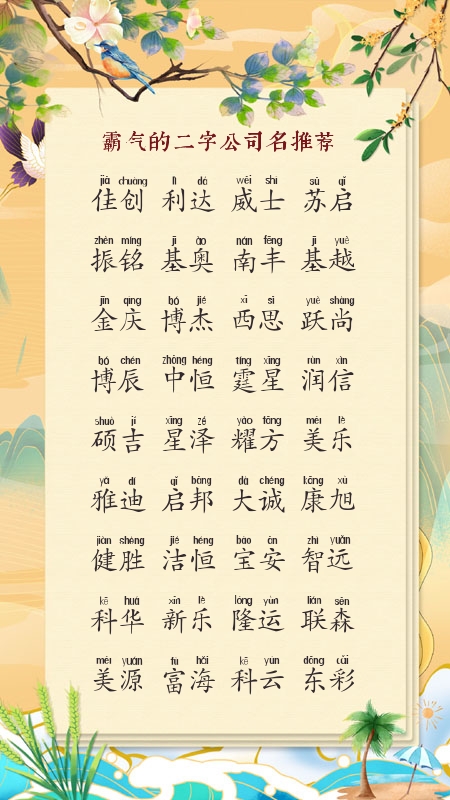 霸气的二字公司名推荐
jiā chuàng lì dá wēi shì sū qǐ
佳创 利达 威士 苏启
zhèn míng jī ào nán fēng jī yuè
振铭 基奥 南丰 基越
jīn qìng bó jié xī sī yuè shàng
金庆 博杰 西思 跃尚
bó chén zhōng héng tíng xīng rùn xìn
博辰 中恒 霆星 润信
shuò jí xīng zé yào fāng měi lè
硕吉 星泽 耀方 美乐
yǎ dí qǐ bāng dà chéng kāng xù
雅迪 启邦 大诚 康旭
jiàn shèng jié héng bǎo ān zhì yuǎn
健胜 洁恒 宝安 智远
kē huá xīn lè lóng yùn lián sēn
科华 新乐 隆运 联森
měi yuán fù hǎi kē yún dōng cǎi
美源 富海 科云 东彩